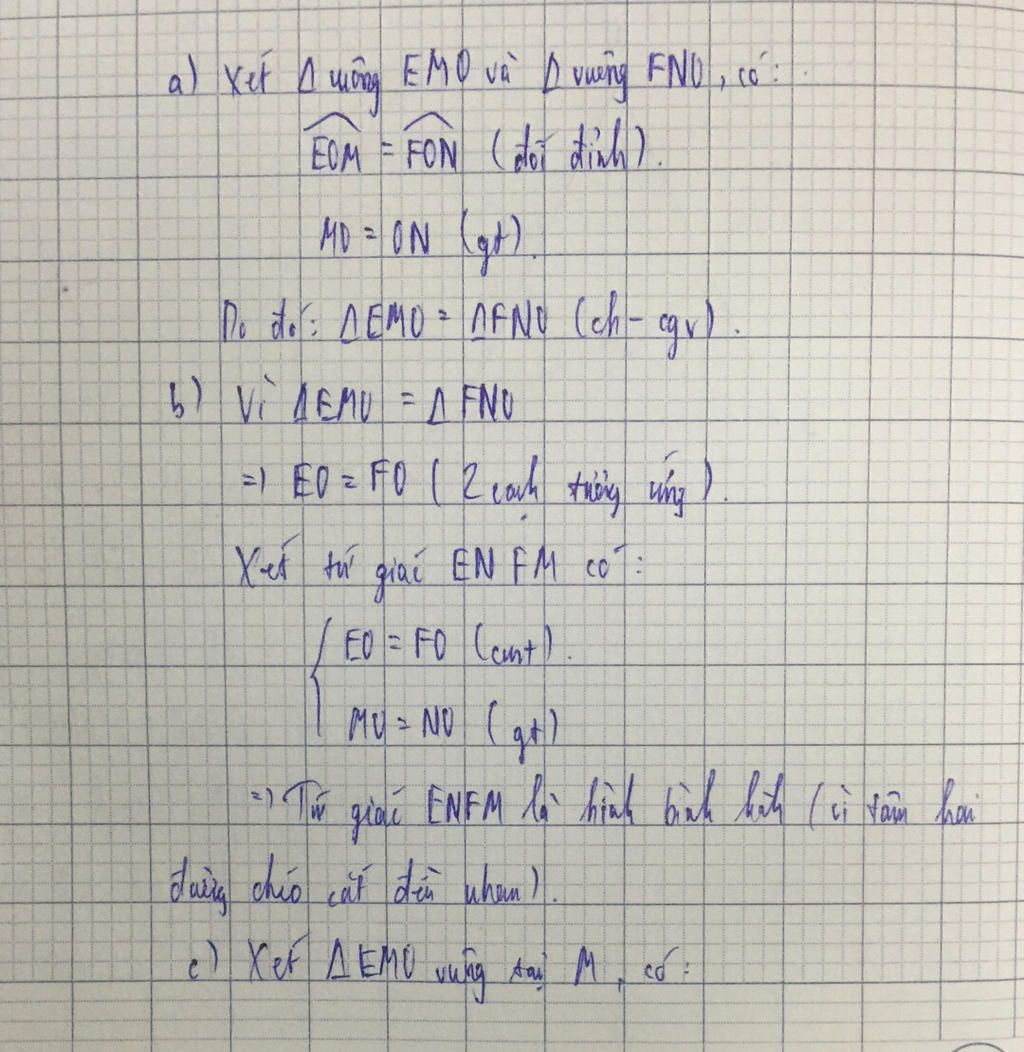 a) Xét Δ vuông EMO và Δ vuông FNO, có:
EOM = FON (đối đỉnh).
MO = ON (gt).
Do đó: ΔEMO = ΔFNO (ch - cgv).
b) Vì ΔEMO = ΔFNO
=> EO = FO (2 cạnh tương ứng).
Xét tứ giác ENFM có:
{ EO = FO (cmt).
MO = NO (gt)
=> Tứ giác ENFM là hình bình hành (vì tâm hai
đường chéo cắt đều nhau).
c) Xét ΔEMO vuông tại M, có: